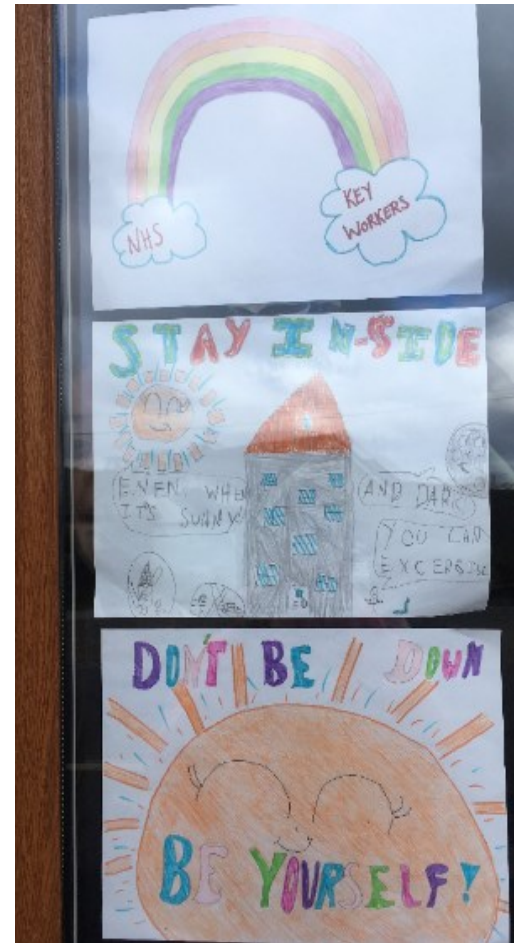 NHS
KEY
WORKERS
STAY IN-SIDE
EVEN WHEN
IT'S SUNNY
AND DARK
YOU CAN
EXCERSISE
DON'T BE DOWN
BE YOURSELF!